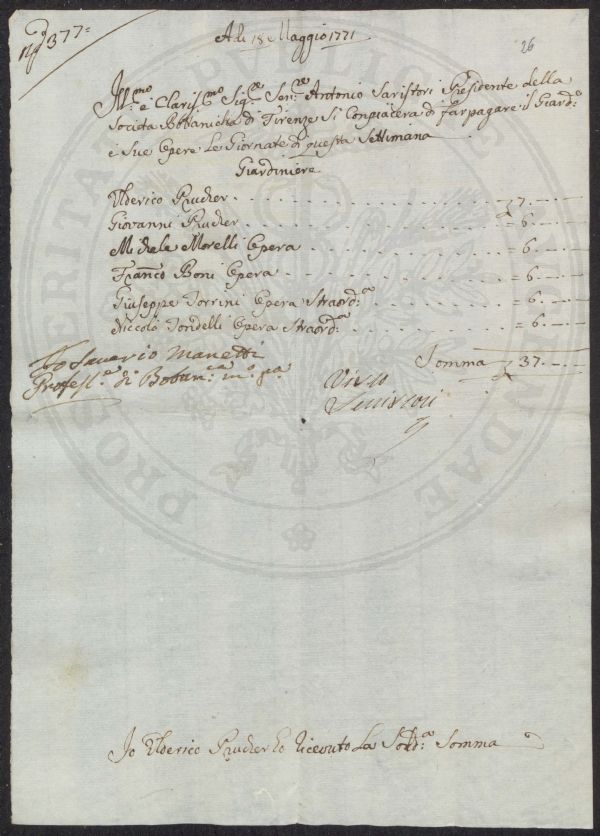 N° 377=
A dì 18 Maggio 1771
26
Ill:mo e Claris:mo Sig:re Sen:re Antonio Saristori Presidente della
Società Bottanicha di Firenze Si Conpiacerà di far pagare il Giard:e
e Sue Opere Le Giornate di questa Settimana
Giardiniere
Ulderico Prucher 7
Giovanni Prucher = 6
Michele Morelli Opera = 6
Franco Boni Opera = 6
Giuseppe Torrini Opera Straord:a = 6
Niccolò Tondelli Opera Straord:a = 6
Somma 37
Io Saverio Manetti
Profess:e di Botan:ca m:o p:a
Visto
Io Ulderico Prucher ho riceuto La Sodd:a Somma
PROSPERITATI PUBLICAE AUGENDAE